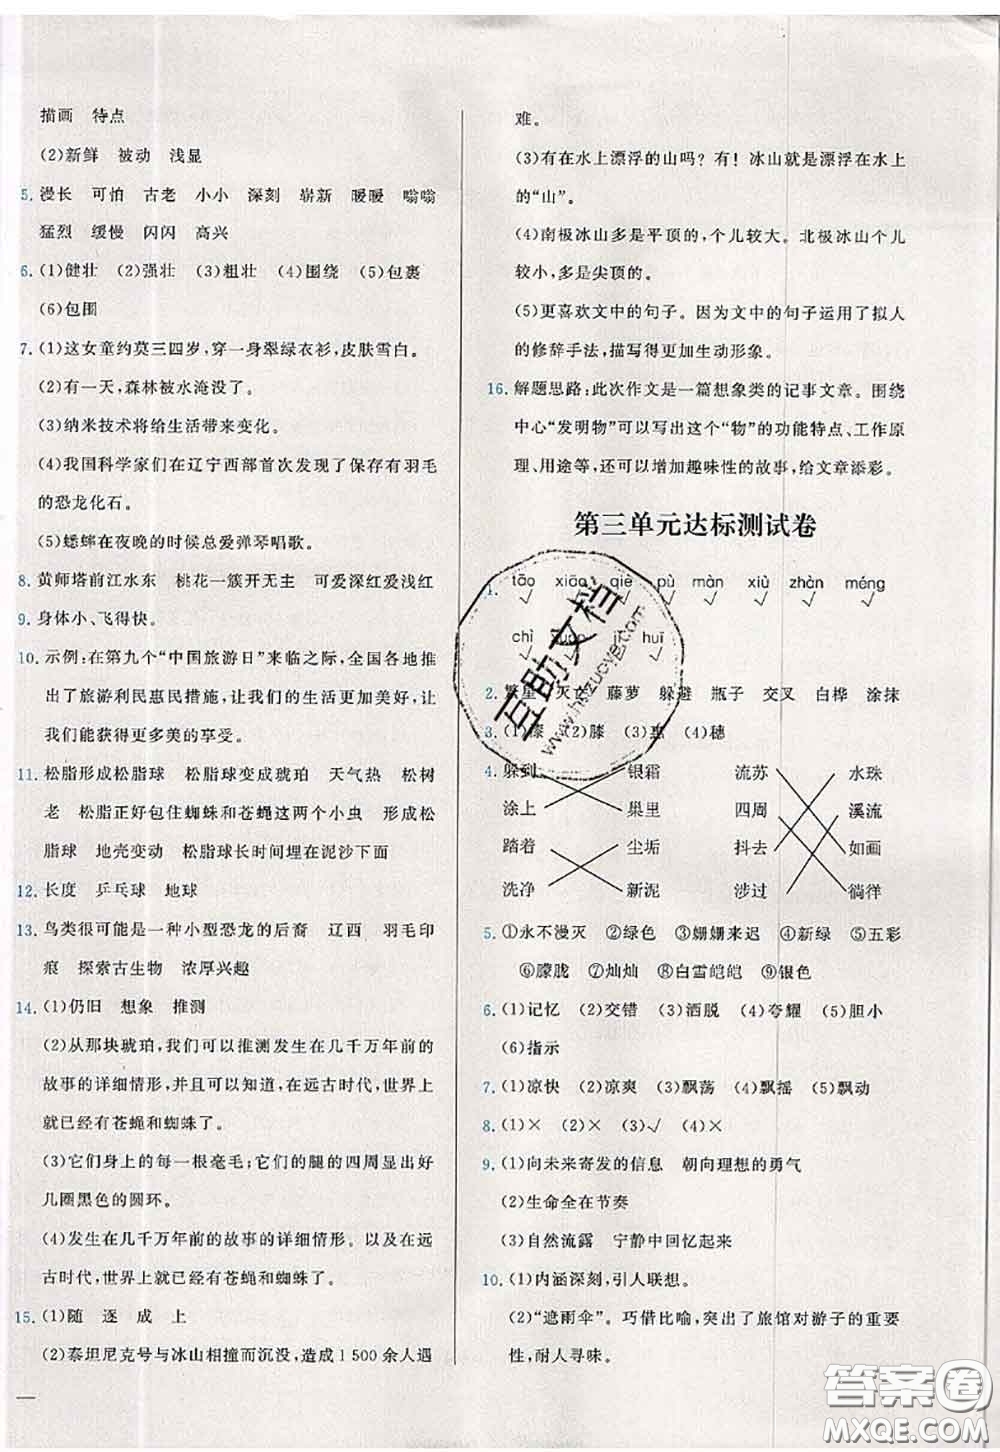 描画 特点
(2)新鲜 被动 浅显
5. 漫长 可怕 古老 小小 深刻 崭新 暖暖 嗡嗡
猛烈 缓慢 闪闪 高兴
6. (1)健壮 (2)强壮 (3)粗壮 (4)围绕 (5)包裹
(6)包围
7. (1)这女童约莫三四岁,穿一身翠绿衣衫,皮肤雪白。
(2)有一天,森林被水淹没了。
(3)纳米技术将给生活带来变化。
(4)我国科学家们在辽宁西部首次发现了保存有羽毛
的恐龙化石。
(5)蟋蟀在夜晚的时候总爱弹琴唱歌。
8. 黄师塔前江水东 桃花一簇开无主 可爱深红爱浅红
9. 身体小、飞得快。
10. 示例:在第九个“中国旅游日”来临之际,全国各地推
出了旅游利民惠民措施,让我们的生活更加美好,让
我们能够获得更多美的享受。
11. 松脂形成松脂球 松脂球变成琥珀 天气热 松树
老 松脂正好包住蜘蛛和苍蝇两个小虫 形成松
脂球 地壳变动 松脂球长时间埋在泥沙下面
12. 长度 乒乓球 地球
13. 鸟类很可能是一种小型恐龙的后裔 辽西 羽毛印
痕 探索古生物 浓厚兴趣
14. (1)仍旧 想象 推测
(2)从那块琥珀,我们可以推测发生在几千万年前的
故事的详细情形,并且可以知道,在远古时代,世界上
就已经有苍蝇和蜘蛛了。
(3)它们身上的每一根毫毛;它们的腿的四周显出好
几圈黑色的圆环。
(4)发生在几千万年前的故事的详细情形。以及在远
古时代,世界上就已经有苍蝇和蜘蛛了。
15. (1)随 逐 成 上
(2)泰坦尼克号与冰山相撞而沉没,造成1500余人遇
难。
(3)有在水上漂浮的山吗?有!冰山就是漂浮在水上
的“山”。
(4)南极冰山多是平顶的,个儿较大。北极冰山个儿
较小,多是尖顶的。
(5)更喜欢文中的句子。因为文中的句子运用了拟人
的修辞手法,描写得更加生动形象。
16. 解题思路:此次作文是一篇想象类的记事文章。围绕
中心“发明物”可以写出这个“物”的功能特点、工作原
理、用途等,还可以增加趣味性的故事,给文章添彩。
第三单元达标测试卷
1. tāo xiāo qiè pù màn xiù zhàn méng
√ √ √ √ √ √
chì huī
√
2. 繁星 灭亡 藤萝 躲避 瓶子 交叉 白桦 涂抹
3. (1)滕 (2)膝 (3)惠 (4)穗
4. 躲到 银霜 流苏 水珠
涂上 巢里 四周 溪流
踏着 尘垢 抖去 如画
洗净 新泥 涉过 徜徉
5. ①永不漫灭 ②绿色 ③姗姗来迟 ④新绿 ⑤五彩
⑥朦胧 ⑦灿灿 ⑧白雪皑皑 ⑨银色
6. (1)记忆 (2)交错 (3)洒脱 (4)夸耀 (5)胆小
(6)指示
7. (1)凉快 (2)凉爽 (3)飘荡 (4)飘摇 (5)飘动
8. (1)× (2)× (3)√ (4)×
9. (1)向未来寄发的信息 朝向理想的勇气
(2)生命全在节奏
(3)自然流露 宁静中回忆起来
10. (1)内涵深刻,引人联想。
(2)“遮雨伞”。巧借比喻,突出了旅馆对游子的重要
性,耐人寻味。
互助文档
答案圈
MXQE.COM